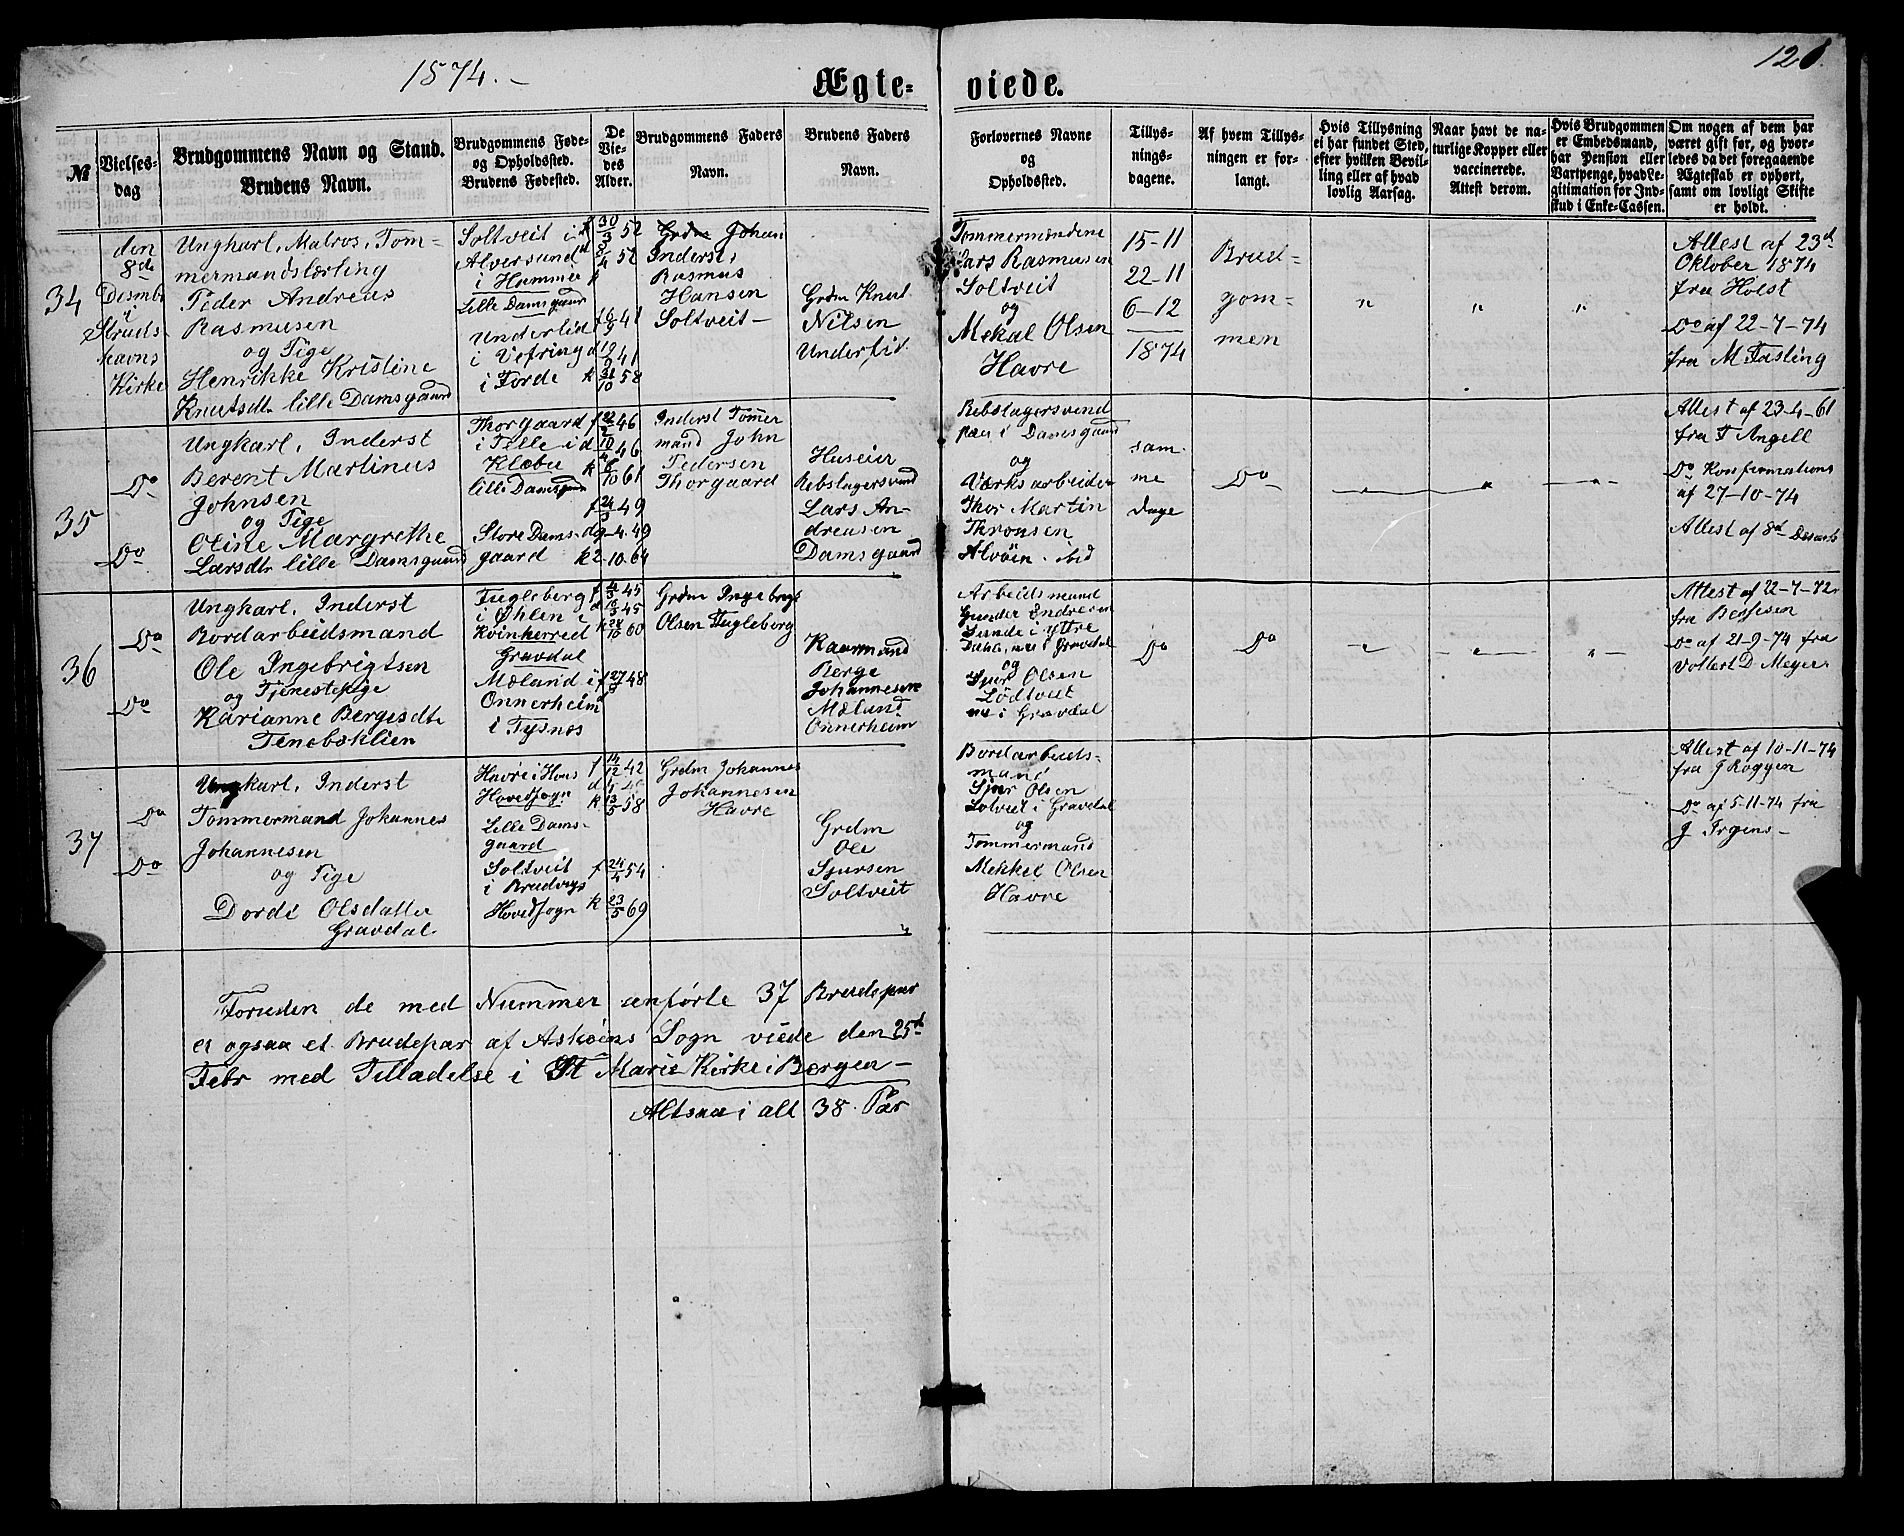 1874.-
Ægte-
viede.
128.
№
Vielses-
dag
Brudgommens Navn og Stand.
Brudens Navn.
Brudgommens Føde-
og Opholdssted.
Brudens Fødested.
De
Vie-
des
Alder.
Brudgommens Faders
Navn.
Brudens Faders
Navn.
Forlovernes Navne
og
Opholdssted.
Tillys-
nings-
dagene.
Af hvem Tillys-
ningen er for-
langt.
Hvis Tillysning
ei har fundet Sted,
efter hvilken Bevil-
ling eller af hvad
lovlig Aarsag.
Naar havt de na-
turlige Kopper eller
vaccinerede.
Attest derom.
Hvis Brudgommen
er Embedsmand,
har Pension eller
Vartpenge, hvad Le-
gitimation for Ind-
skud i Enke-Cassen.
Om nogen af dem har
været gift før, og hvor-
ledes da det foregaaende
Ægteskab er ophørt,
samt om lovligt Skifte
er holdt.
34
den
8de
Desmb
i
Struds-
havns
Kirke
Ungkarl, Matros, Tøm-
mermandslærling
Peder Andreas
Rasmusen
og Pige
Henrikke Kristine
Knutsdt. lille Damsgaard
Soltveit i
Alversund
i Hammer
Lille Damsgaard
Underlid
i Vefring
i Førde
f 30/3 52
d 8/4 52
k
f 6/9 41
d 19/9 41
k 31/10 58
Grdm Johan
Inderst,
Rasmus
Hansen
Soltveit-
Grdm Knut
Nilsen
Underlid
Tømmermændene
Lars Rasmusen
Soltveit
og
Mekal Olsen
Havre
15-11
22-11
6-12
1874
Brud-
gom-
men
"
"
"
Attest af 23d
Oktober 1874
fra Holst
Do af 22-7-74
fra M Fasting
35
Do
Do
Ungkarl, Inderst
Berent Martinus
Johnsen
og Pige
Oline Margrethe
Larsdt. lille Damsgaard
Thorgaard
i Tille i
Klæbu
lille Damsgaard
Store Dams-
gaard
f 46
d 46
k 6/10 61
f 24/3 49
d 9-4-49
k 2-10-64
Inderst Tømmer
mand John
Pedersen
Thorgaard
Huseier
Rebslagersvend
Lars An-
dreasen
Damsgaard
Rebslagersvend
paa i Damsgaard
og
Værksarbeider
Thor Martin
Thronsen
Alvøen. ibid
sam-
me
Dage
Do
Attest af 23-4-61
fra F Angell
Do Konfirmations
af 27-10-74
Attest af 8d Desemb
36
Do
Do
Ungkarl, Inderst
Bordarbeidsmand
Ole Ingebrigtsen
og Tjenestepige
Karianne Bergesdtr
Tenebeklien
Fugleberg
i Øhlen i
Kvinherred
Gravdal
Mæland i
Onnerheim
i Tysnes
f 45
d 45
k 24/10 60
f 27/9 48
Grdm Ingebrigt
Olsen Fugleberg
Kaarmand
Berge
Johannesen
Mæland
Onnerheim
Arbeidsmand
Gunder Endresen
Sunde i Ytre
i Gravdal
og
Sjur Olsen
Lødtveit
i Gravdal
Do
Do
Attest af 22-7-72
fra
Do af 21-9-74 fra
Vollert D. Meyer
37
Do
Do
Ungkarl, Inderst
Tømmermand Johannes
Johannesen
og Pige
Dordi Olsdatter
Gravdal
Havre i Hous
Hovedsogn
Lille Dams-
gaard
Soltveit
i Brudvigs
Hovedsogn
f 14/12 42
d
k 13/5 58
f 24/4 54
k 23/5 69
Grdm Johannes
Johannesen
Havre
Grdm
Ole
Sjursen
Soltveit
Bordarbeids-
mand
Sjur Olsen
Solveit i Gravdal
og
Tømmermand
Mekkel Olsen
Havre
Attest af 10-11-74
fra J Roggen
Do af 5-11-74 fra
J Irgens-
Foruden de med Nummer anførte 37 Brudepar
er ogsaa et Brudepar af Askøens Sogn viede den 25d
Febr med Tilladelse i St Marie Kirke i Bergen-
Altsaa i alt 38 Par